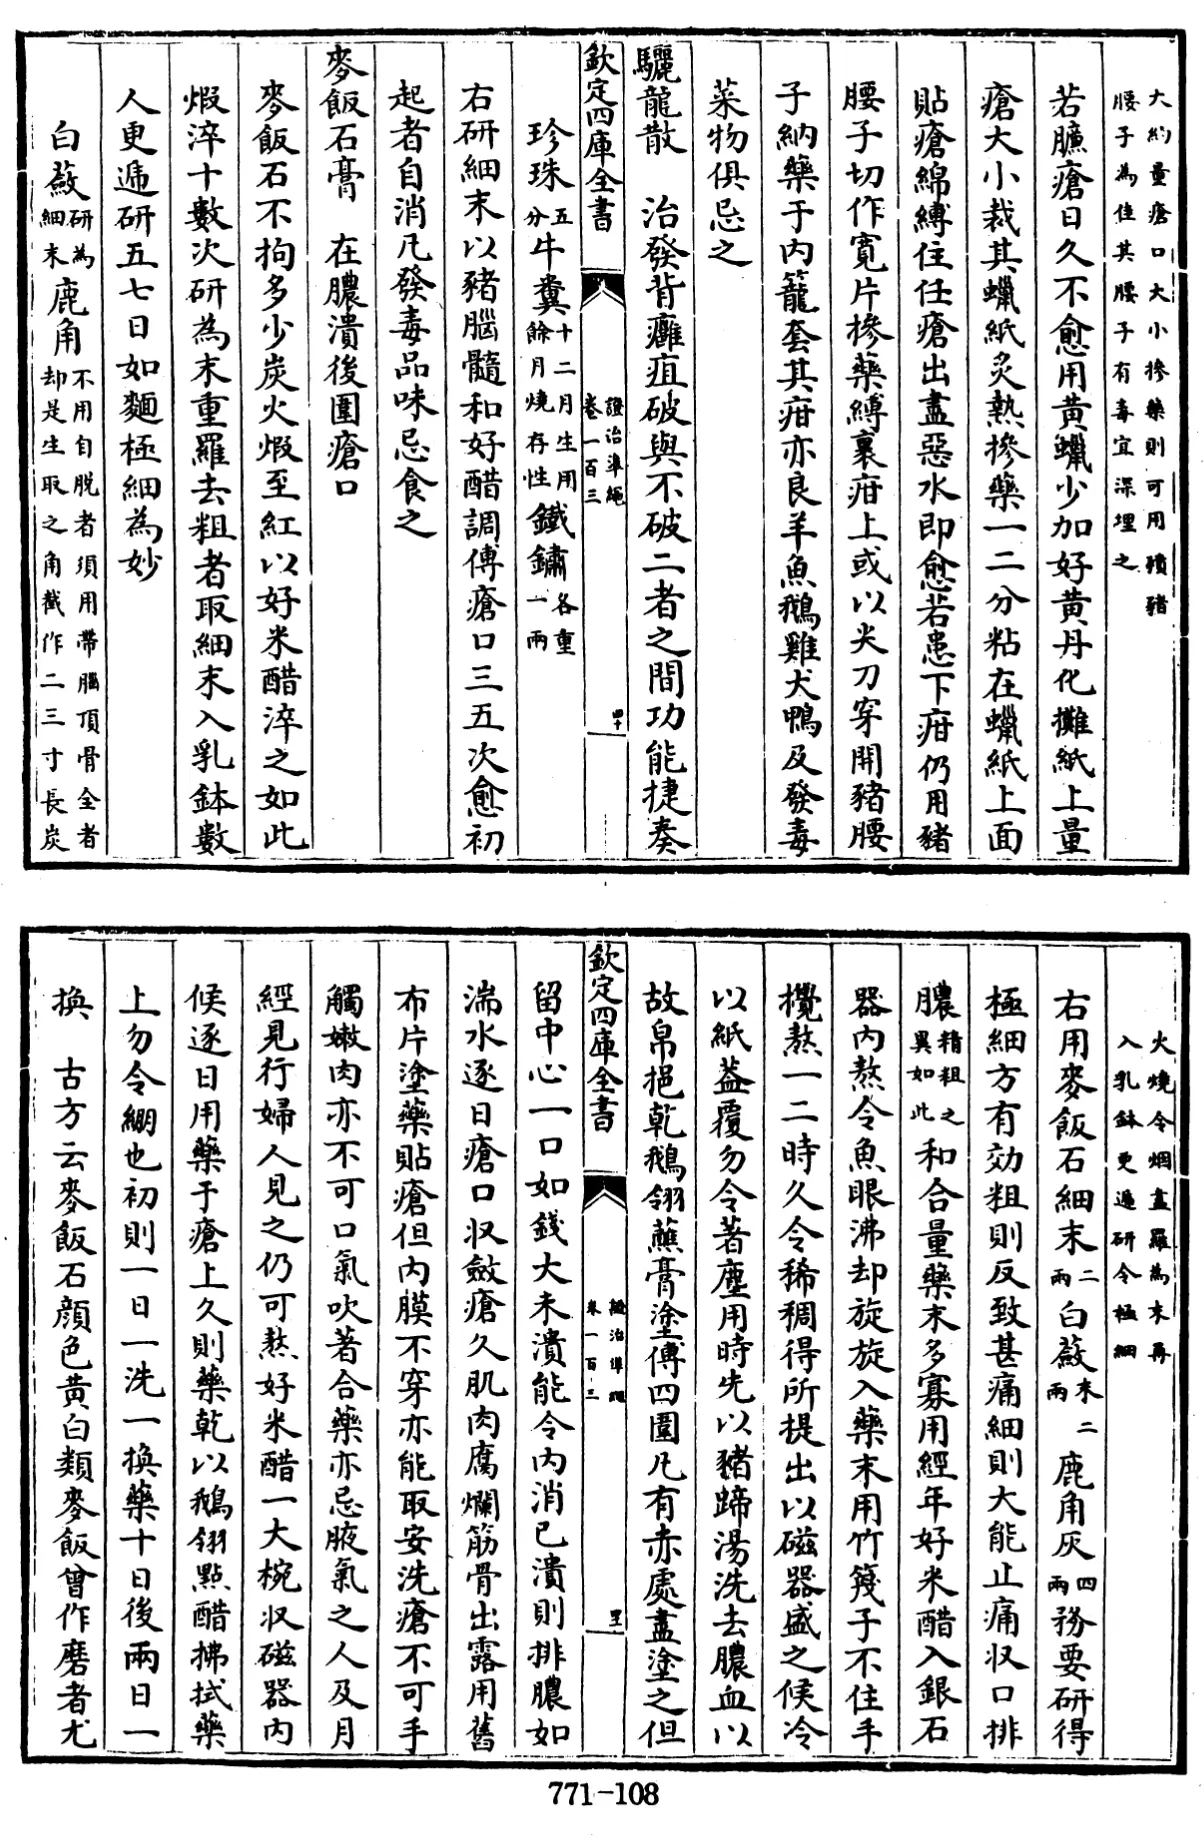 大約量瘡口大小摻藥則可用𤡔豬
腰子為佳其腰子有毒宜深埋之
若臁瘡日久不愈用黄蠟少加好黄丹化攤紙上量
瘡大小裁其蠟紙炙熱摻藥一二分粘在蠟紙上面
貼瘡綿縛住任瘡出盡惡水即愈若患下疳仍用豬
腰子切作寛片摻藥縛裏疳上或以尖刀穿開豬腰
子納藥于内籠套其疳亦良羊魚鵝雞犬鴨及發毒
菜物俱忌之
驪龍散　治發背癰疽破與不破二者之間功能捷奏
欽定四庫全書
證治準繩
卷一百三
四十
珍珠五分牛糞十二月生用餘月燒存性鐵鏽各重一兩
右研細末以豬腦髓和好醋調傅瘡口三五次愈初
起者自消凡發毒品味忌食之
麥飯石膏　在膿潰後圍瘡口
麥飯石不拘多少炭火煅至紅以好米醋淬之如此
煅淬十數次研為末重羅去粗者取細末入乳鉢數
人更遞研五七日如麵極細為妙
白蘞研為細末鹿角不用自脱者須用帶腦頂骨全者却是生取之角截作二三寸長炭
火燒令烟盡羅為末再
入乳鉢更遞研令極細
右用麥飯石細末二兩白蘞末二兩鹿角灰四兩務要研得
極細方有効粗則反致甚痛細則大能止痛収口排
膿精粗之異如此和合量藥末多寡用經年好米醋入銀石
器内熬令魚眼沸却旋旋入藥末用竹篾子不住手
攪熬一二時久令稀稠得所提出以磁器盛之候冷
以紙葢覆勿令著塵用時先以豬蹄湯洗去膿血以
故帛挹乾鵝翎蘸膏塗傅四圍凡有赤處盡塗之但
欽定四庫全書
證治準繩
卷一百三
留中心一口如錢大未潰能令内消已潰則排膿如
湍水逐日瘡口収斂瘡久肌肉腐爛筋骨出露用舊
布片塗藥貼瘡但内膜不穿亦能取安洗瘡不可手
觸嫩肉亦不可口氣吹著合藥亦忌腋氣之人及月
經見行婦人見之仍可熬好米醋一大椀収磁器内
候逐日用藥于瘡上久則藥乾以鵝翎㸃醋拂拭藥
上勿令綳也初則一日一洗一換藥十日後兩日一
換　古方云麥飯石顔色黄白類麥飯曾作磨者尤
771-108